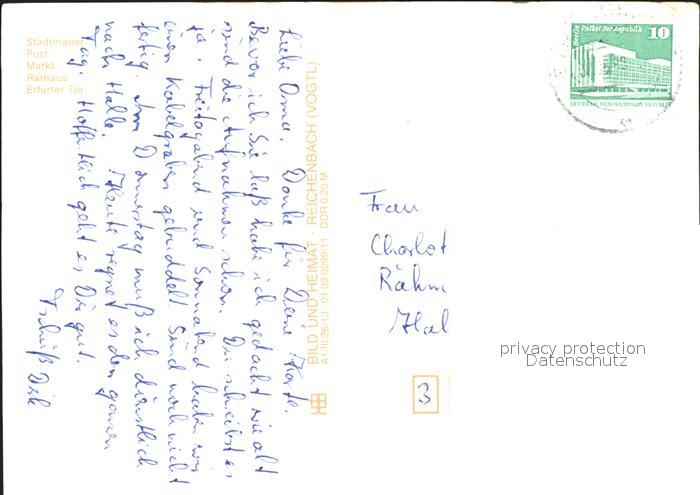 Stadtmauer
Post
Markt
Rathaus
Erfurter Tor
Liebe Oma. Danke für Deine Karte.
Bevor ich Sie laß habe ich gedacht wie alt
sind die Aufnahmen schon. Du schreibst es
ja. Freitagabend und Sonnabend haben wir
einen Kabelgraben gebuddelt. Sind noch nicht
fertig. Am Donnerstag muß ich dienstlich
nach Halle. Heute regnet es den ganzen
Tag. Hoffentlich geht es Dir gut.
Tschüß Dirk
BILD UND HEIMAT · REICHENBACH (VOGTL)
A1/III/26/13 · 01 09 0299/11 · DDR 0,20 M
Berlin Palast der Republik
10
DEUTSCHE DEMOKRATISCHE REPUBLIK
Frau
Charlot
Rähm
Hal
3
privacy protection
Datenschutz